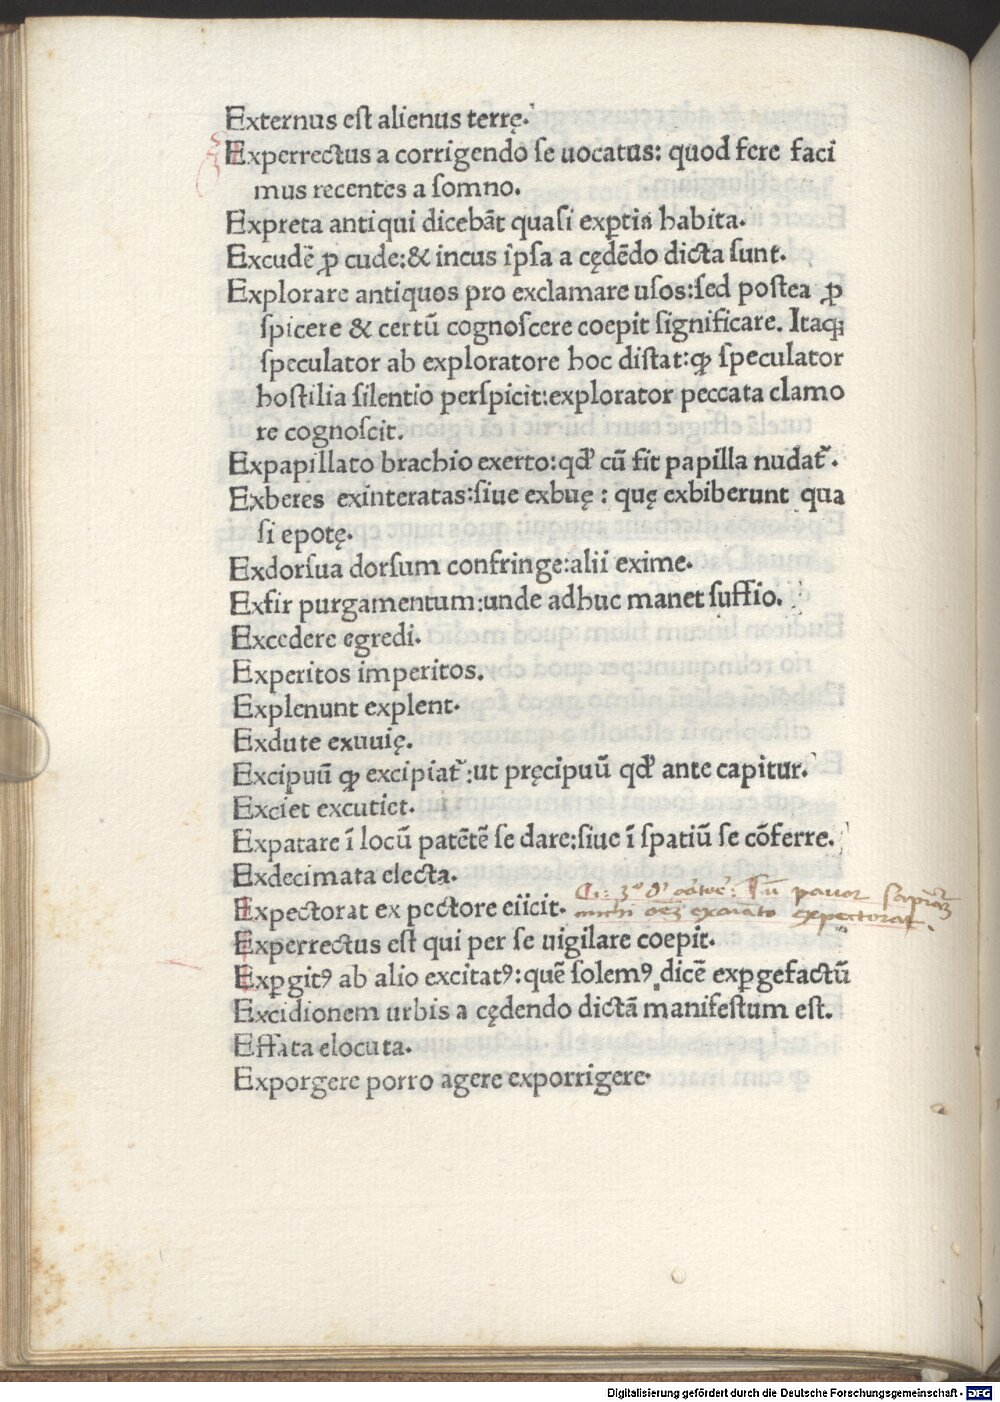 Externus est alienus terrę.
Experrectus a corrigendo se uocatus: quod fere faci
mus recentes a somno.
Expreta antiqui dicebāt quasi exꝑtia habita.
Excudē ꝓ cude:& incus ipsa a cędēdo dicta sunt.
Explorare antiquos pro exclamare usos:sed postea ꝓ
spicere & certū cognoscere coepit significare. Itaqꝫ
speculator ab exploratore hoc distat:ꝙ speculator
hostilia silentio perspicit:explorator peccata clamo
re cognoscit.
Expapillato brachio exerto:qđ cū fit papilla nudat᷑.
Exberes exinteratas:siue exbuę : quę exbiberunt qua
si epotę.
Exdorsua dorsum confringe:alii exime.
Exfir purgamentum:unde adhuc manet suffio.
Excedere egredi.
Experitos imperitos.
Explenunt explent.
Exdute exuuię.
Excipuū ꝙ excipiat᷑:ut pręcipuū qđ ante capitur.
Exciet excutiet.
Expatare ī locū patētē se dare:siue ī spatiū se cōferre.
Exdecimata electa.
Expectorat ex pectore eiicit.
pauor sapiām
michi exaīato expectorat.
Experrectus est qui per se uigilare coepit.
Exꝑgitꝰ ab alio excitatꝰ:quē solemꝰ dicē exꝑgefactū
Excidionem urbis a cędendo dictā manifestum est.
Effata elocuta.
Exporgere porro agere exporrigere.
Digitalisierung gefördert durch die Deutsche Forschungsgemeinschaft - DFG